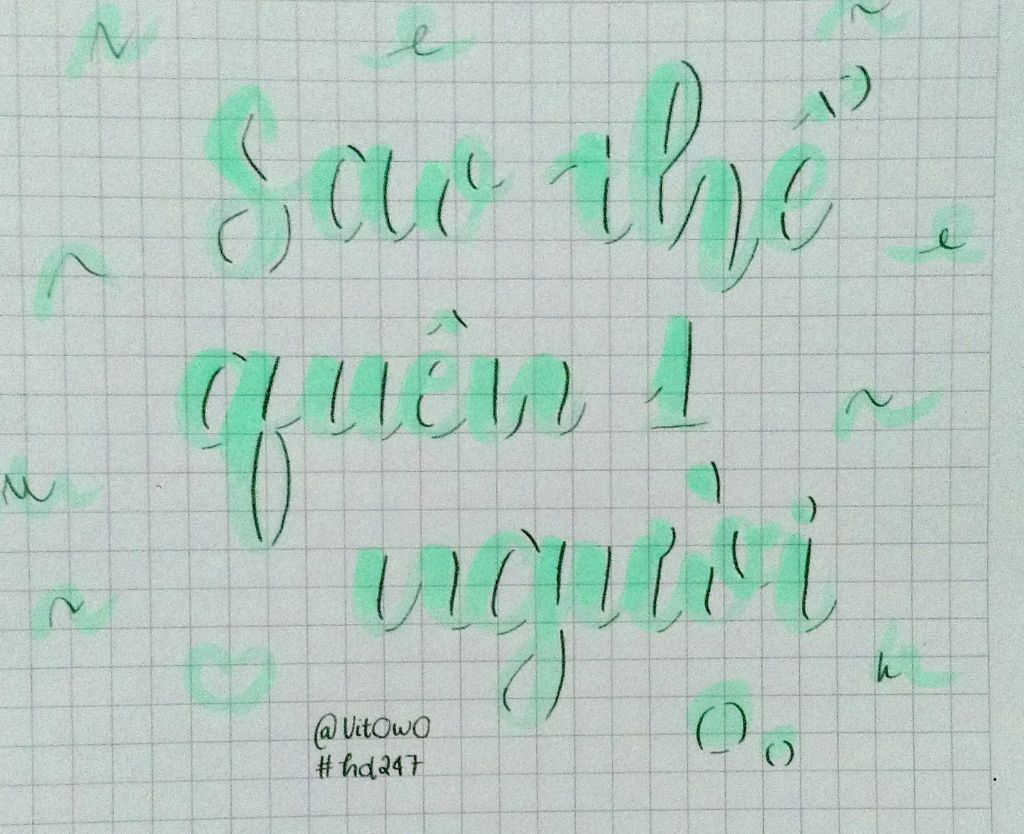 Sao thể
quên 1
người
@VitOwO
#hd247